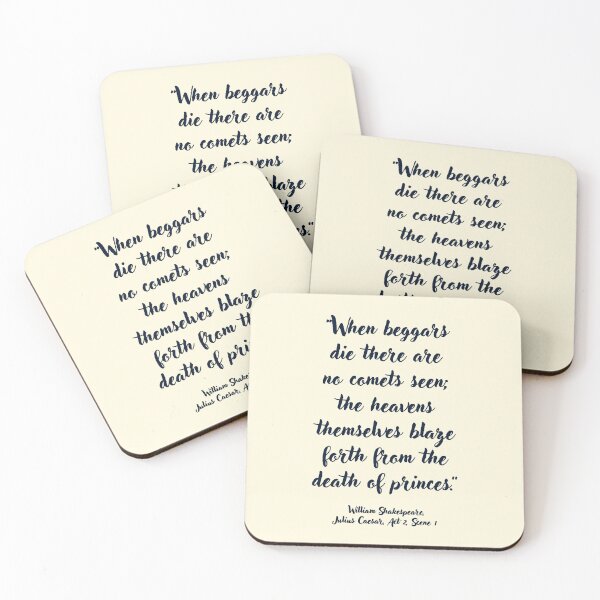 "When beggars
die there are
no comets seen;
the heavens
blaze
the
s."
"When beggars
die there are
no comets seen;
the heavens
themselves blaze
forth from the
"When beggars
die there are
no comets seen;
the heavens
themselves blaze
forth from th
death of princes
William Shake
Julius Caesar, Act
"When beggars
die there are
no comets seen;
the heavens
themselves blaze
forth from the
death of princes."
William Shakespeare,
Julius Caesar, Act 2, Scene 1